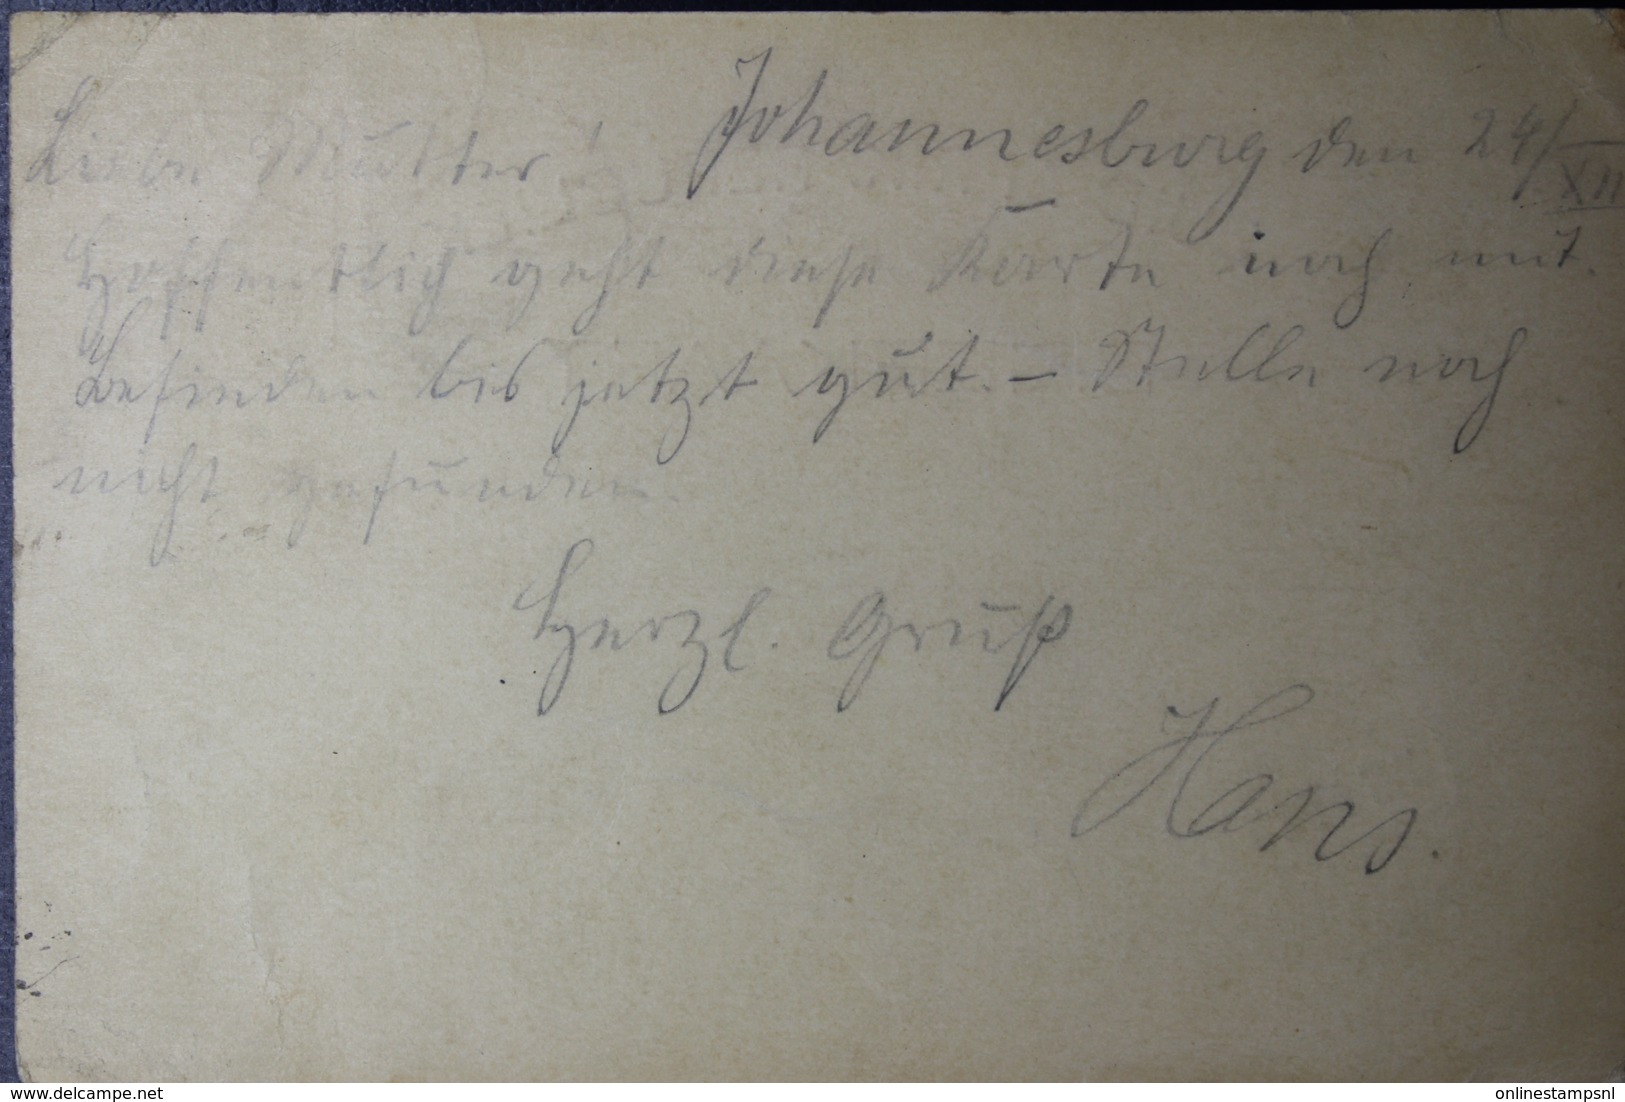 Johannesburg den 24/XII
Liebe Mutter!
Hoffentlich geht diese Karte noch mit.
Befinden bis jetzt gut. – Stelle noch
nicht gefunden.
Herzl. Gruß
Hans.
www.delcampe.net
onlinestampsnl